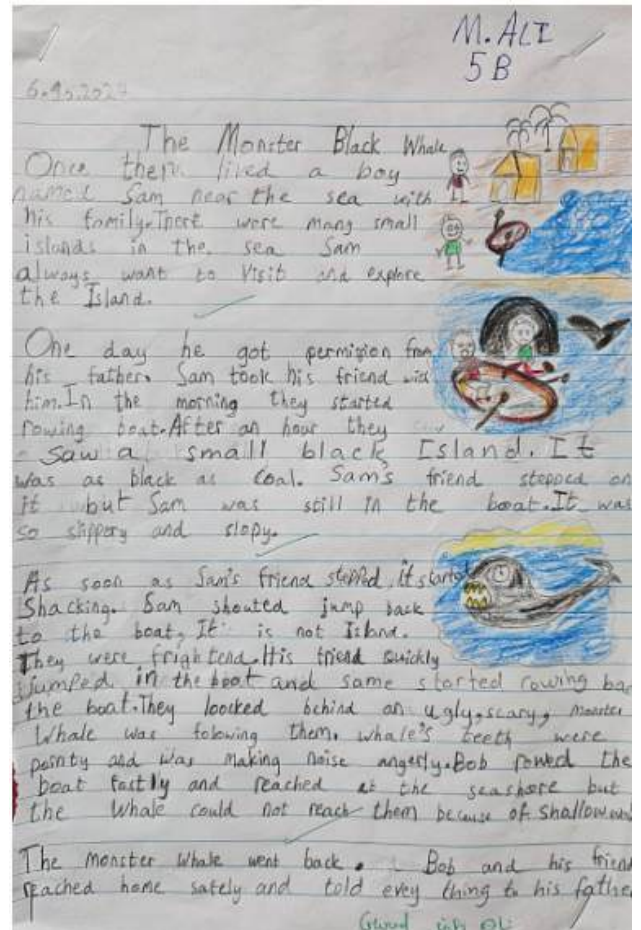 M. ALI
5B
The Monster Black Whale
Once there lived a boy
named Sam near the sea with
his family. There were many small
islands in the sea Sam
always want to Visit and explore
the Island.
One day he got permission from
his father. Sam took his friend with
him. In the morning they started
rowing boat. After an hour they
saw a small black Island. It
was as black as Coal. Sam's friend stepped on
it but Sam was still in the boat. It was
so slippery and slopy.
As soon as Sam's friend stepped, it started
Shacking. Sam shouted jump back
to the boat, It is not Island.
They were frightend. His friend quickly
jumped in the boat and same started rowing bac
the boat. They loocked behind an ugly, scary, monster
Whale was folowing them. whale's teeth were
pointy and was making noise angerly. Bob rowed the
boat fastly and reached at the seashore but
the Whale could not reach them because of shallow
The monster Whale went back. Bob and his friend
reached home safely and told evey thing to his father